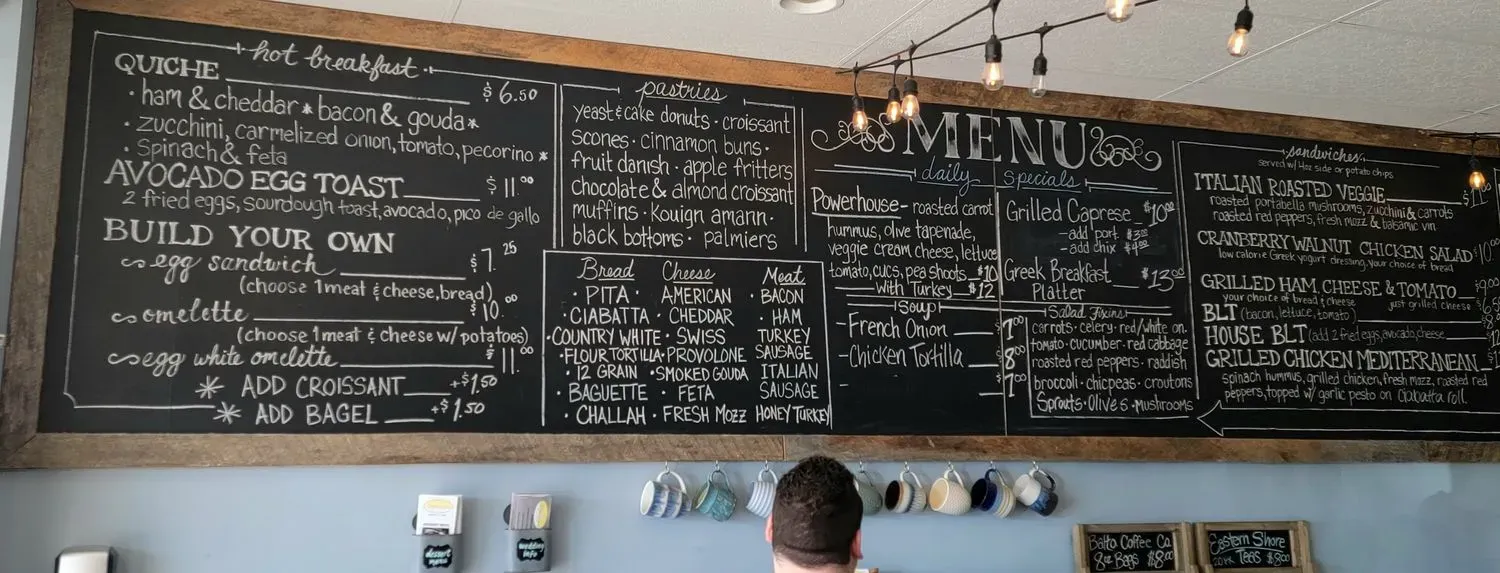 hot breakfast
QUICHE $6.50
· ham & cheddar * bacon & gouda *
· zucchini, carmelized onion, tomato, pecorino *
· spinach & feta
AVOCADO EGG TOAST $11.00
2 fried eggs, sourdough toast, avocado, pico de gallo
BUILD YOUR OWN
egg sandwich $7.25
(choose 1 meat & cheese, bread)
omelette $10.00
(choose 1 meat & cheese w/ potatoes)
egg white omelette $11.00
* ADD CROISSANT +$1.50
* ADD BAGEL +$1.50
pastries
yeast & cake donuts · croissant
scones · cinnamon buns ·
fruit danish · apple fritters
chocolate & almond croissant
muffins · Kouign amann ·
black bottoms · palmiers
Bread Cheese Meat
· PITA · AMERICAN · BACON
· CIABATTA · CHEDDAR · HAM
· COUNTRY WHITE · SWISS TURKEY
· FLOUR TORTILLA · PROVOLONE SAUSAGE
· 12 GRAIN · SMOKED GOUDA ITALIAN
· BAGUETTE · FETA SAUSAGE
· CHALLAH · FRESH MOZZ HONEY TURKEY
MENU
daily specials
Powerhouse - roasted carrot
hummus, olive tapenade,
veggie cream cheese, lettuce
tomato, cucs, pea shoots $10
with Turkey $12
Grilled Caprese $10.00
- add port $3.00
- add chix $4.00
Greek Breakfast $13.00
Platter
Soup
- French Onion $7.00
- Chicken Tortilla $8.00
- $7.00
Salad Fixins
carrots · celery · red/white on.
tomato · cucumber · red cabbage
roasted red peppers · raddish
broccoli · chicpeas · croutons
Sprouts · Olives · Mushrooms
sandwiches
served w/ 4oz side or potato chips
ITALIAN ROASTED VEGGIE
roasted portabella mushrooms, zucchini & carrots
roasted red peppers, fresh mozz & balsamic vin
CRANBERRY WALNUT CHICKEN SALAD $10.00
low calorie Greek yogurt dressing, your choice of bread
GRILLED HAM, CHEESE & TOMATO
your choice of bread & cheese just grilled cheese
BLT (bacon, lettuce, tomato)
HOUSE BLT (add 2 fried eggs, avocado, cheese
GRILLED CHICKEN MEDITERRANEAN
spinach hummus, grilled chicken, fresh mozz, roasted red
peppers, topped w/ garlic pesto on Ciabatta roll.
dessert menu
wedding info
Balto Coffee Co.
8oz Bags $8.00
Eastern Shore
Teas $8.00